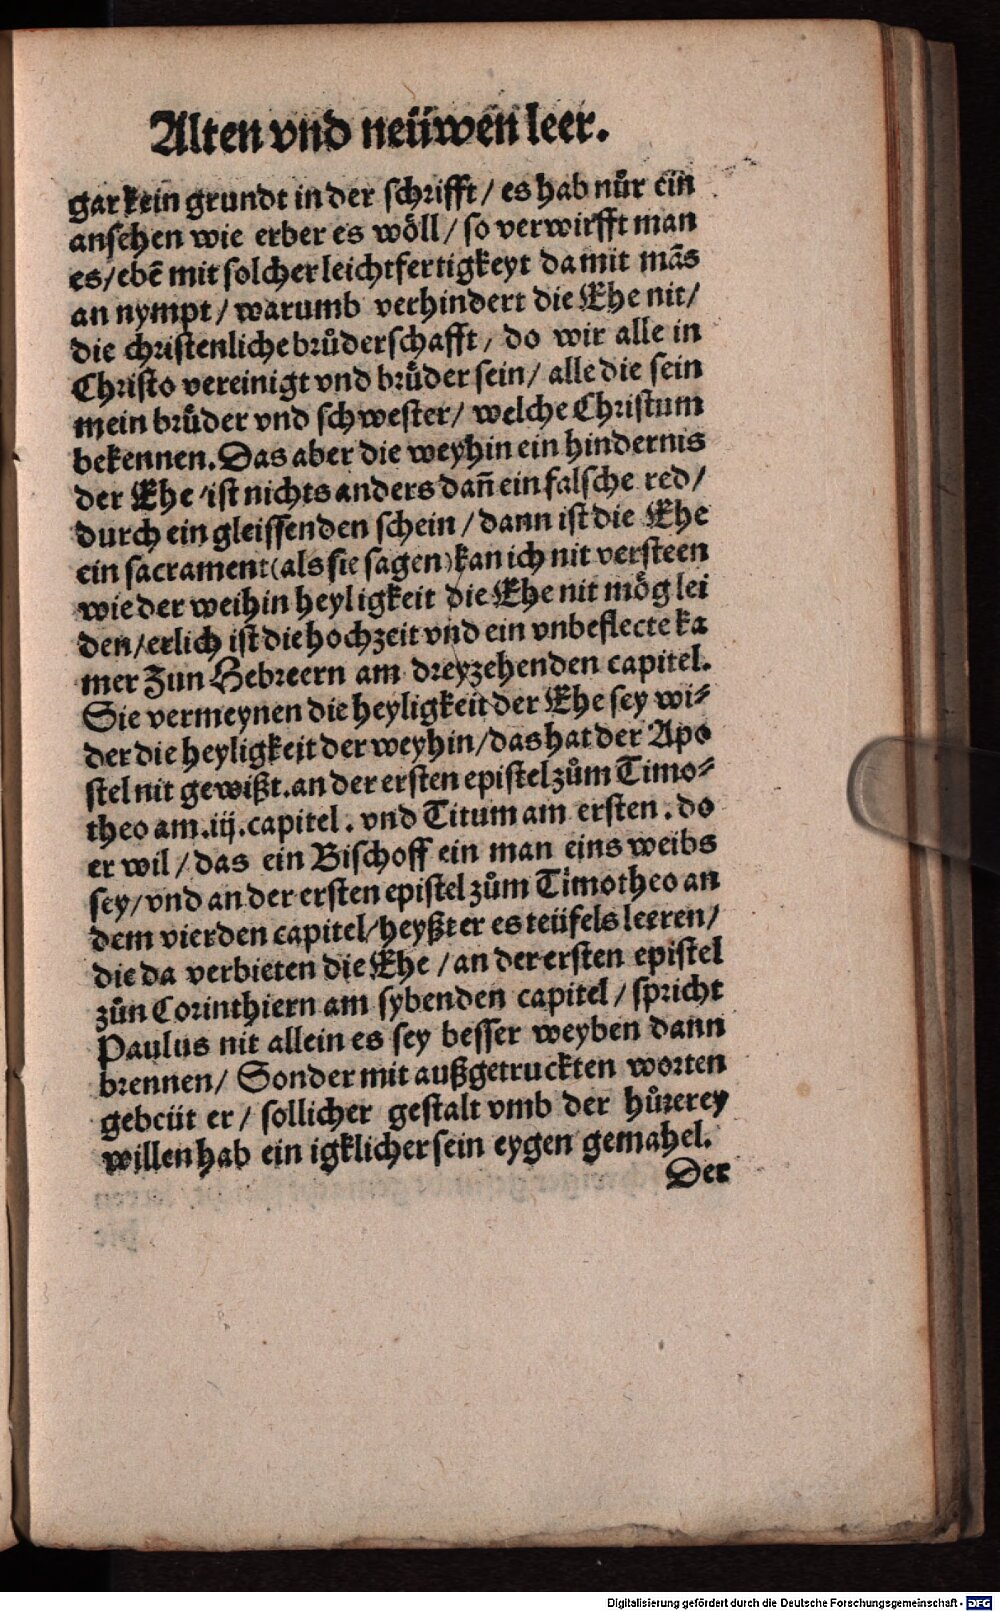 Alten vnd neüwen leer.
gar kein grundt in der schrifft / es hab nůr ein
ansehen wie erber es wöll / so verwirfft man
es / ebē mit solcher leichtfertigkeyt damit mās
an nympt / warumb verhindert die Ehe nit /
die christenliche brůderschafft / do wir alle in
Christo vereinigt vnd brůder sein / alle die sein
mein brůder vnd schwester / welche Christum
bekennen. Das aber die weyhin ein hindernis
der Ehe / ist nichts anders dañ ein falsche red /
durch ein gleissenden schein / dann ist die Ehe
ein sacrament (als sie sagen) kan ich nit versteen
wie der weihin heyligkeit die Ehe nit mög lei
den / erlich ist die hochzeit vnd ein vnbeflecte ka
mer Zun Hebreern am dreyzehenden capitel.
Sie vermeynen die heyligkeit der Ehe sey wi⸗
der die heyligkeit der weyhin / das hat der Apo
stel nit gewißt. an der ersten epistel zům Timo⸗
theo am .iij. capitel. vnd Titum am ersten. do
er wil / das ein Bischoff ein man eins weibs
sey / vnd an der ersten epistel zům Timotheo an
dem vierden capitel / heyßt er es teüfels leeren /
die da verbieten die Ehe / an der ersten epistel
zůn Corinthiern am sybenden capitel / spricht
Paulus nit allein es sey besser weyben dann
brennen / Sonder mit außgetruckten worten
gebeüt er / sollicher gestalt vmb der hůrerey
willen hab ein igklicher sein eygen gemahel.
Der
Digitalisierung gefördert durch die Deutsche Forschungsgemeinschaft - DFG